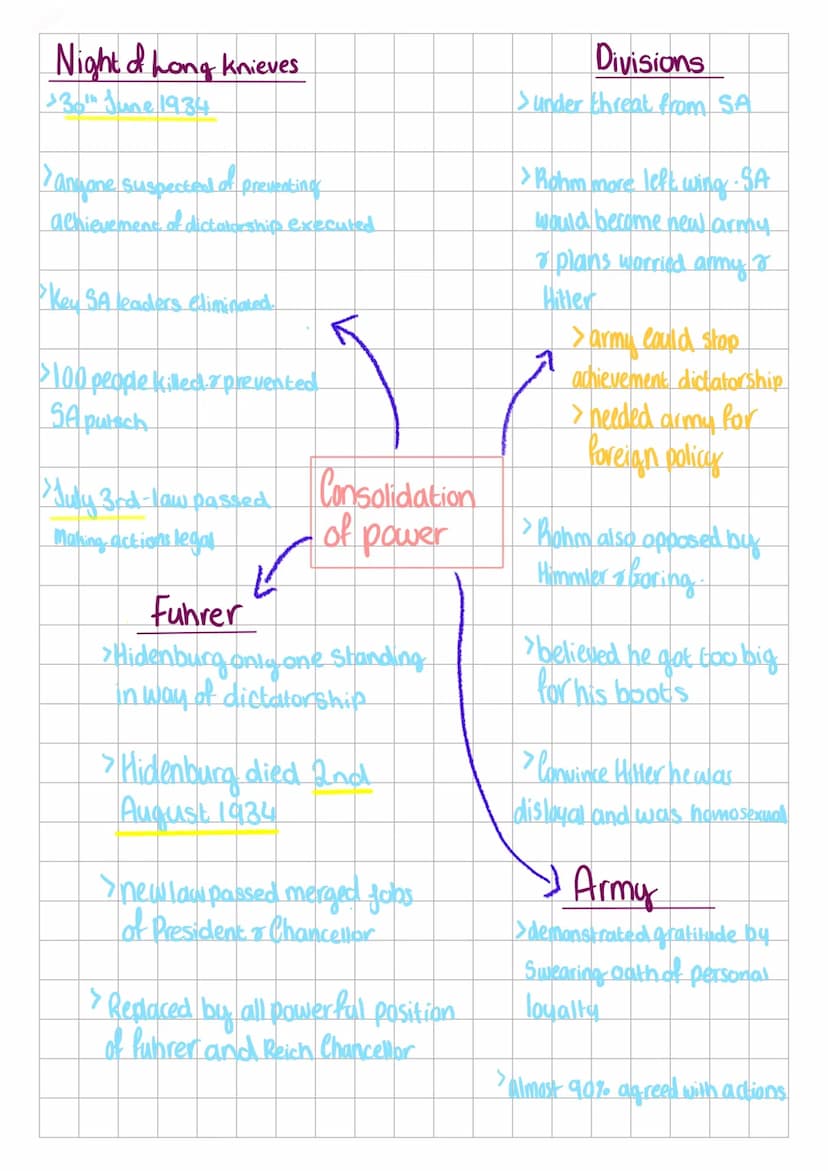 Night of Long Knieves
>30th June 1934
>anyone suspected of preventing
achievement of dictatorship executed
>Key SA leaders eliminated.
>100 people killed & prevented
SA putsch
>July 3rd - law passed
Making actions legal
Divisions
>under threat from SA
>Rohm more left wing. SA
would become new army
& plans worried army &
Hitler
>army could stop
achievement dictatorship
>needed army for
foreign policy
>Rohm also opposed by
Himmler & Goring.
>believed he got too big
for his boots
>Convince Hitler he was
disloyal and was homosexual
Consolidation
of power
Fuhrer
>Hidenburg only one standing
in way of dictatorship
>Hidenburg died 2nd
August 1934
>new law passed merged jobs
of President & Chancellor
>Replaced by all powerful position
of fuhrer and Reich Chancellor
Army
>demonstrated gratitude by
Swearing oath of personal
loyalty
>Almost 90% agreed with actions